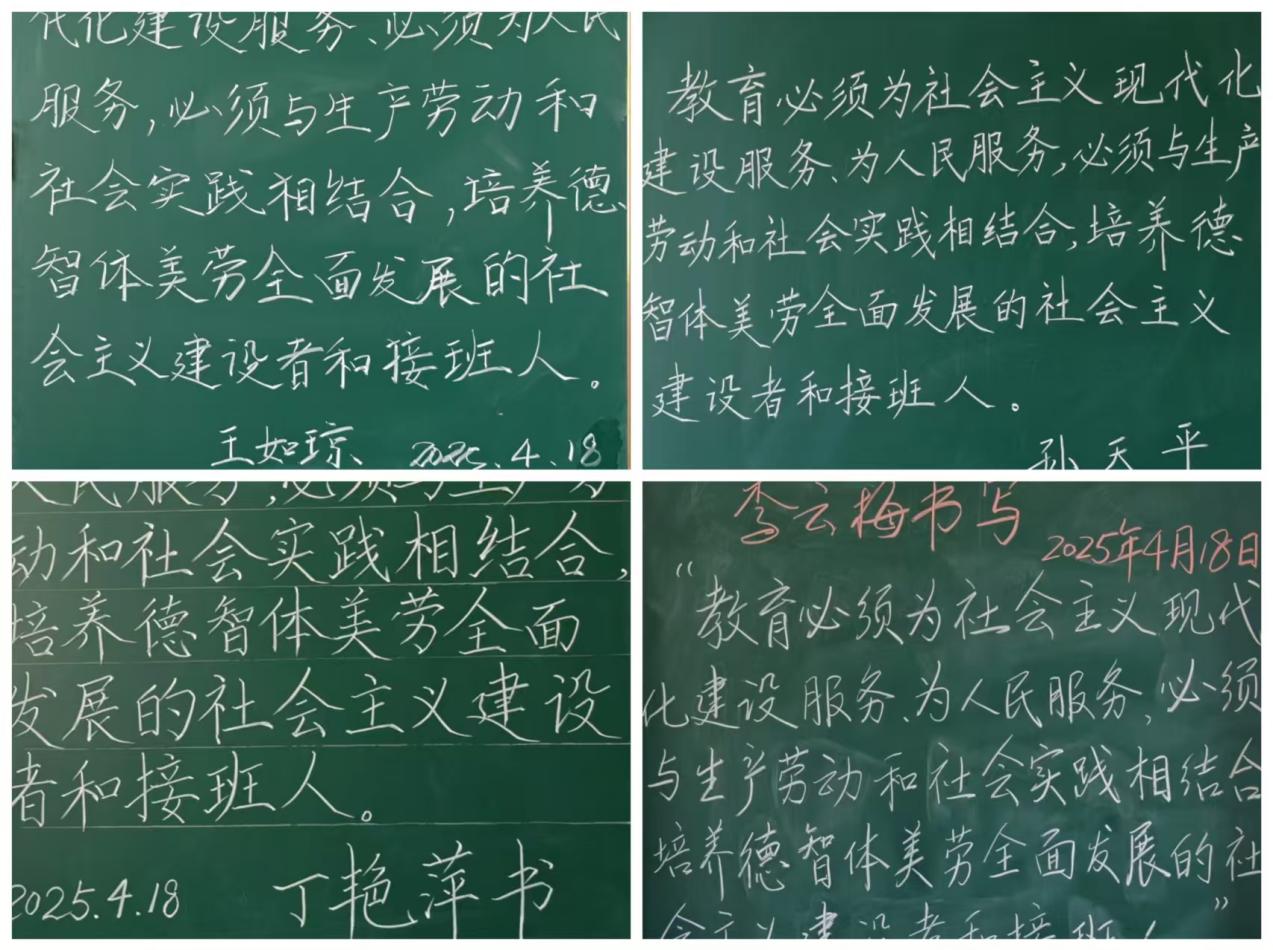 代化建设服务、必须为人民
服务,必须与生产劳动和
社会实践相结合,培养德
智体美劳全面发展的社
会主义建设者和接班人。
王如琼 2025.4.18
教育必须为社会主义现代化
建设服务、为人民服务,必须与生产
劳动和社会实践相结合,培养德
智体美劳全面发展的社会主义
建设者和接班人。
孙天平
人民服务,必须与生产劳
动和社会实践相结合,
培养德智体美劳全面
发展的社会主义建设
者和接班人。
2025.4.18 丁艳萍书
李云梅书写
2025年4月18日
“教育必须为社会主义现代
化建设服务、为人民服务,必须
与生产劳动和社会实践相结合
培养德智体美劳全面发展的社
会主义建设者和接班人”